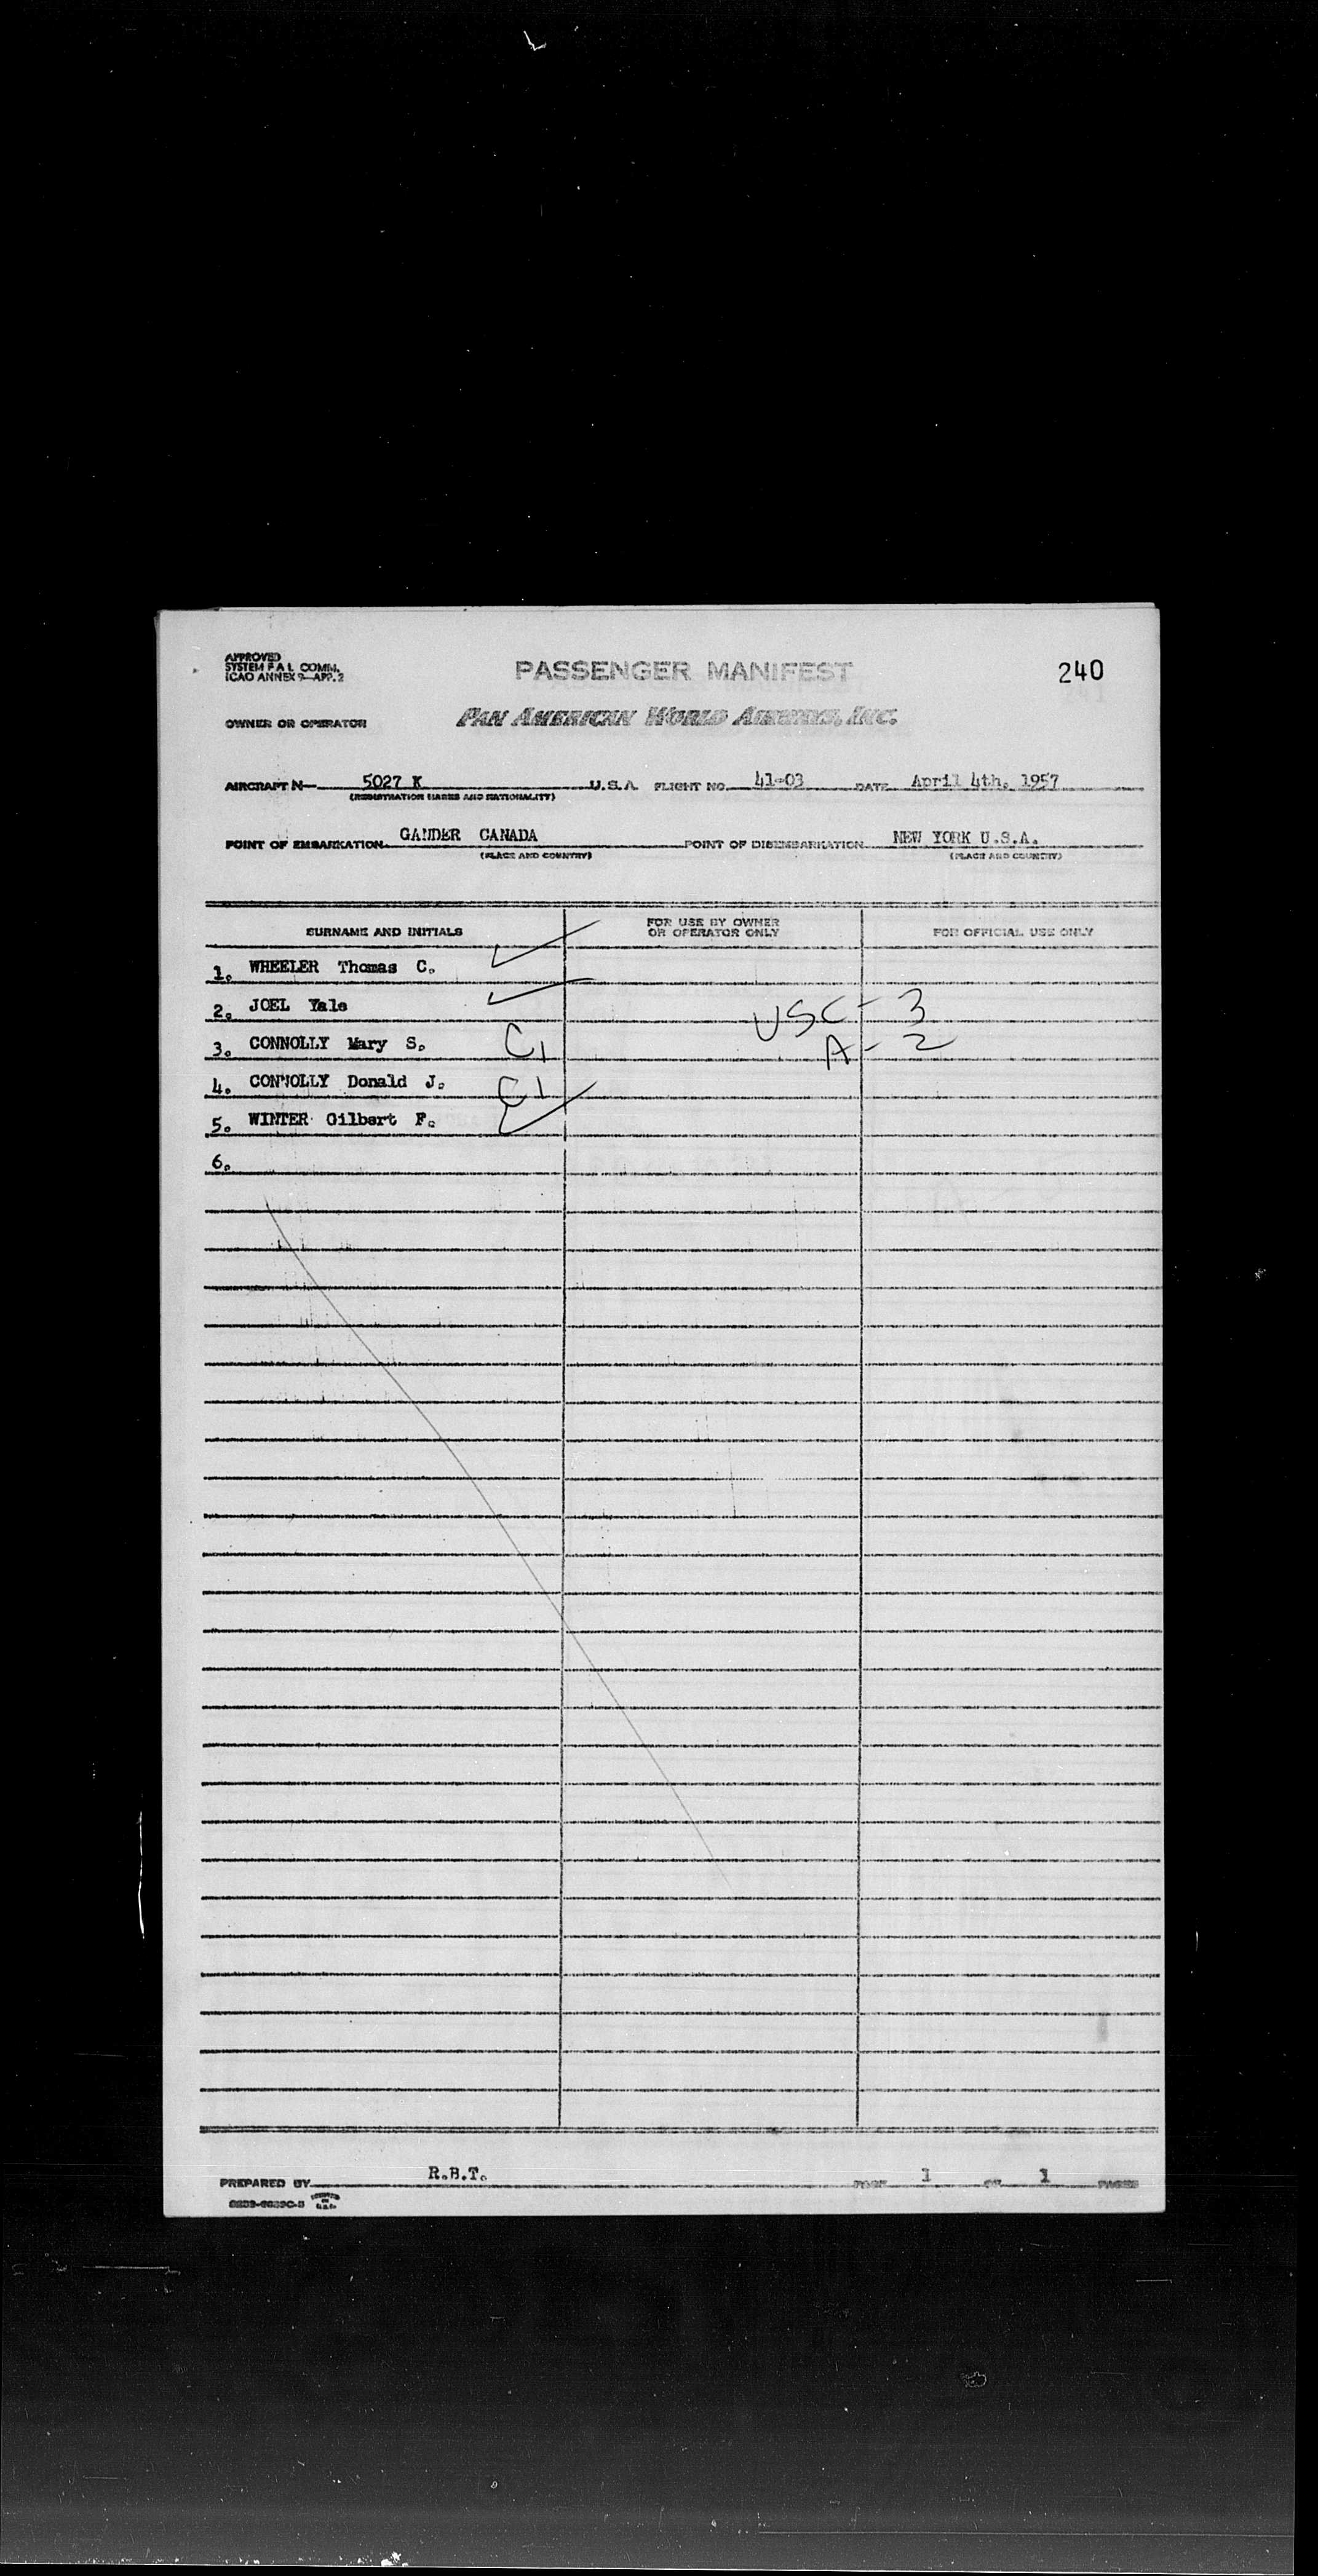 APPROVED
SYSTEM F A L COMM.
ICAO ANNEX 9—APP. 2
PASSENGER MANIFEST
240
OWNER OR OPERATOR
PAN AMERICAN WORLD AIRWAYS, INC.
AIRCRAFT N— 5027 K U.S.A. FLIGHT NO. 41-03 DATE April 4th, 1957
(REGISTRATION MARKS AND NATIONALITY)
POINT OF EMBARKATION GANDER CANADA POINT OF DISEMBARKATION NEW YORK U.S.A.
(PLACE AND COUNTRY) (PLACE AND COUNTRY)
SURNAME AND INITIALS
FOR USE BY OWNER
OR OPERATOR ONLY
FOR OFFICIAL USE ONLY
1. WHEELER Thomas C.
2. JOEL Yale
USC - 3
3. CONNOLLY Mary S. C1
A - 2
4. CONNOLLY Donald J. C1
5. WINTER Gilbert F.
6.
PREPARED BY R.B.T. PAGE 1 OF 1 PAGES